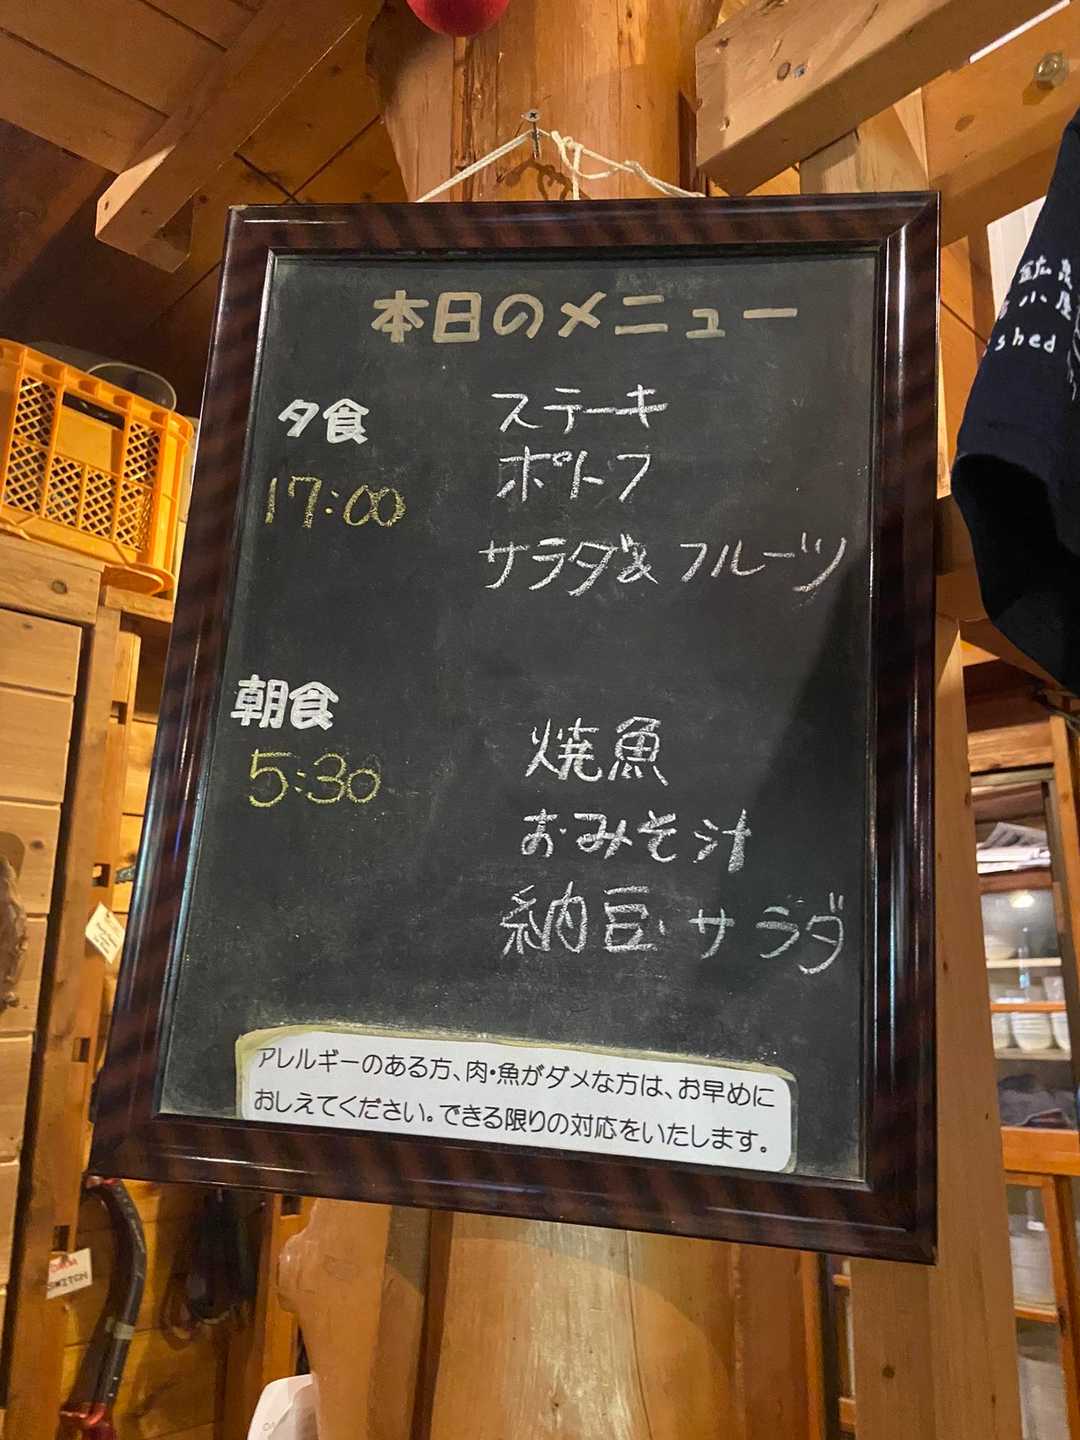 本日のメニュー
夕食
17:00
ステーキ
ポトフ
サラダ&フルーツ
朝食
5:30
焼魚
おみそ汁
納豆・サラダ
アレルギーのある方、肉・魚がダメな方は、お早めに
おしえてください。できる限りの対応をいたします。
小屋
shed
SWITCH